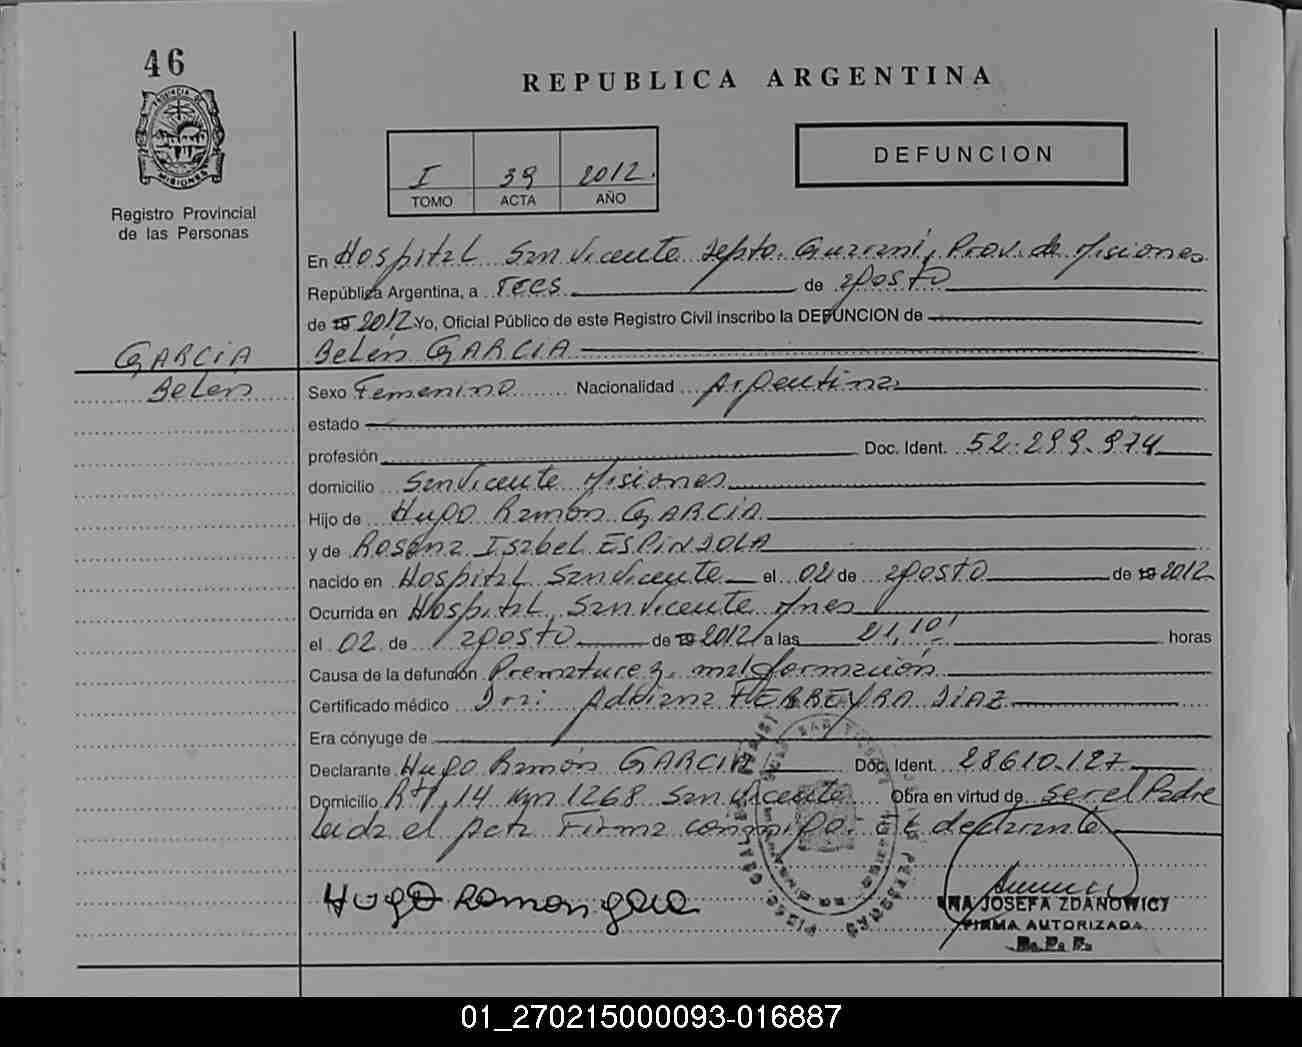 46
REPUBLICA ARGENTINA
PROVINCIA DE
MISIONES
Registro Provincial
de las Personas
I 39 2012.
TOMO ACTA AÑO
DEFUNCION
En Hospital San Vicente Depto. Guaraní, Prov. de Misiones
República Argentina, a Tres de agosto
de 19 2012 Yo, Oficial Público de este Registro Civil inscribo la DEFUNCION de
GARCIA
Belén GARCIA
Belén
Sexo Femenino Nacionalidad Argentina
estado
profesión Doc. Ident. 52.299.974
domicilio San Vicente Misiones
Hijo de Hugo Ramón GARCIA
y de Rosana Isabel ESPINDOLA
nacido en Hospital San Vicente el 02 de agosto de 19 2012
Ocurrida en Hospital San Vicente Mnes
el 02 de agosto de 19 2012 a las 21,10' horas
Causa de la defunción Prematurez, malformación
Certificado médico Dra: Adriana FERREYRA DIAZ
Era cónyuge de
Declarante Hugo Ramón GARCIA Doc. Ident. 28610.127
Domicilio 14 Km 1268 San Vicente Obra en virtud de ser el Padre
Leida el acta Firma conmigo el declarante
Hugo Ramon garcia
ANA JOSEFA ZDANOWICZ
FIRMA AUTORIZADA
01_270215000093-016887